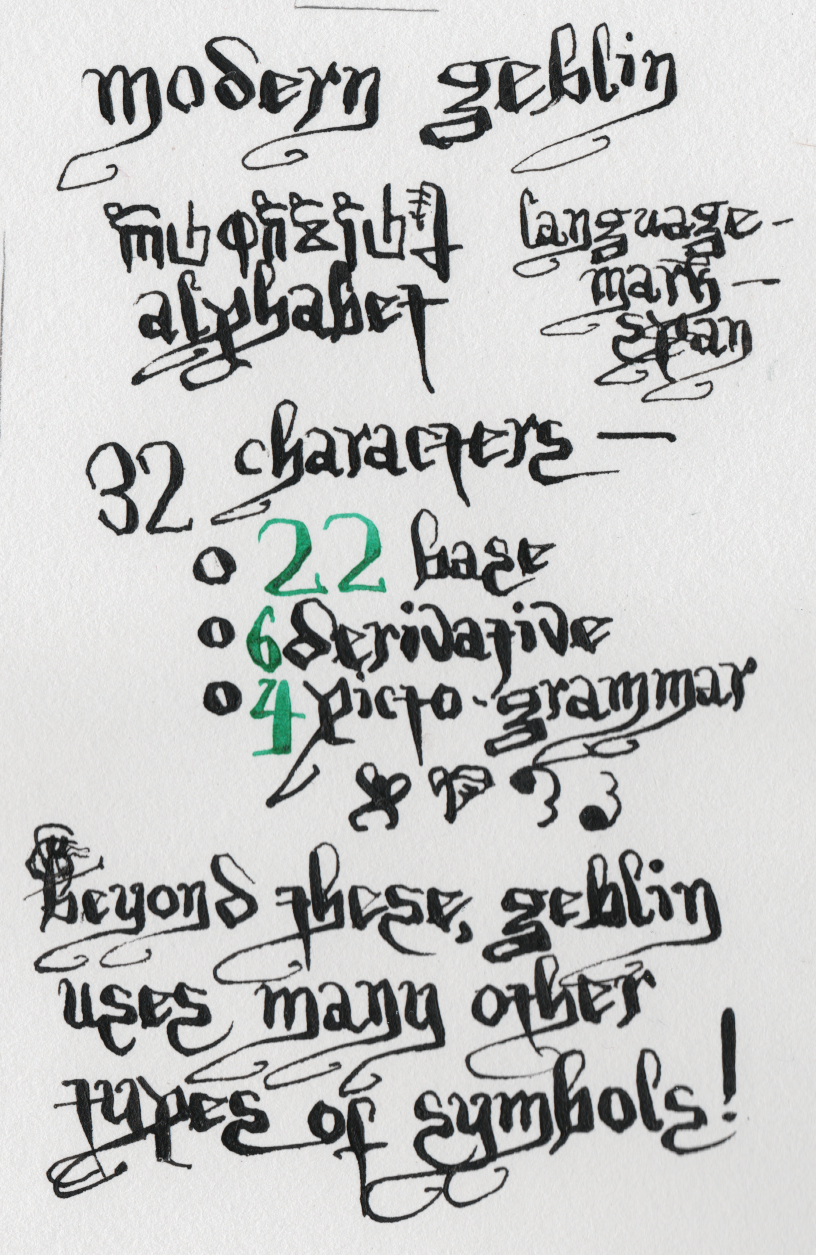 modern geblin
alphabet
language-
mark-
span
32 characters —
22 base
6 derivative
4 picto-grammar
beyond these, geblin
uses many other
types of symbols!